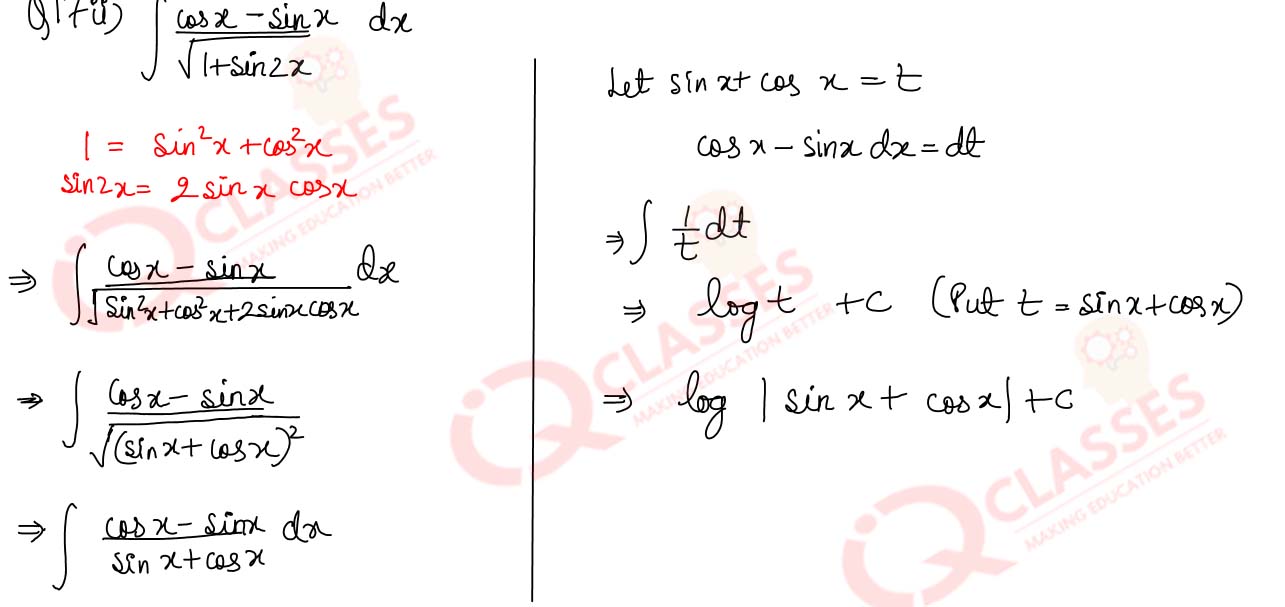 Q17 ii) ∫ (cosx - sinx)/√(1+sin2x) dx
1 = sin²x + cos²x
sin2x = 2 sin x cosx
⇒ ∫ (cosx - sinx)/√(sin²x+cos²x+2sinxcosx) dx
⇒ ∫ (cosx - sinx)/√((sinx+cosx)²)
⇒ ∫ (cosx - sinx)/(sin x+cosx) dx
Let sin x+ cos x = t
cos x - sinx dx = dt
⇒ ∫ 1/t dt
⇒ log t + c (Put t = sinx+cosx)
⇒ log | sin x + cos x| + c
IQ CLASSES
MAKING EDUCATION BETTER
IQ CLASSES
MAKING EDUCATION BETTER
IQ CLASSES
MAKING EDUCATION BETTER